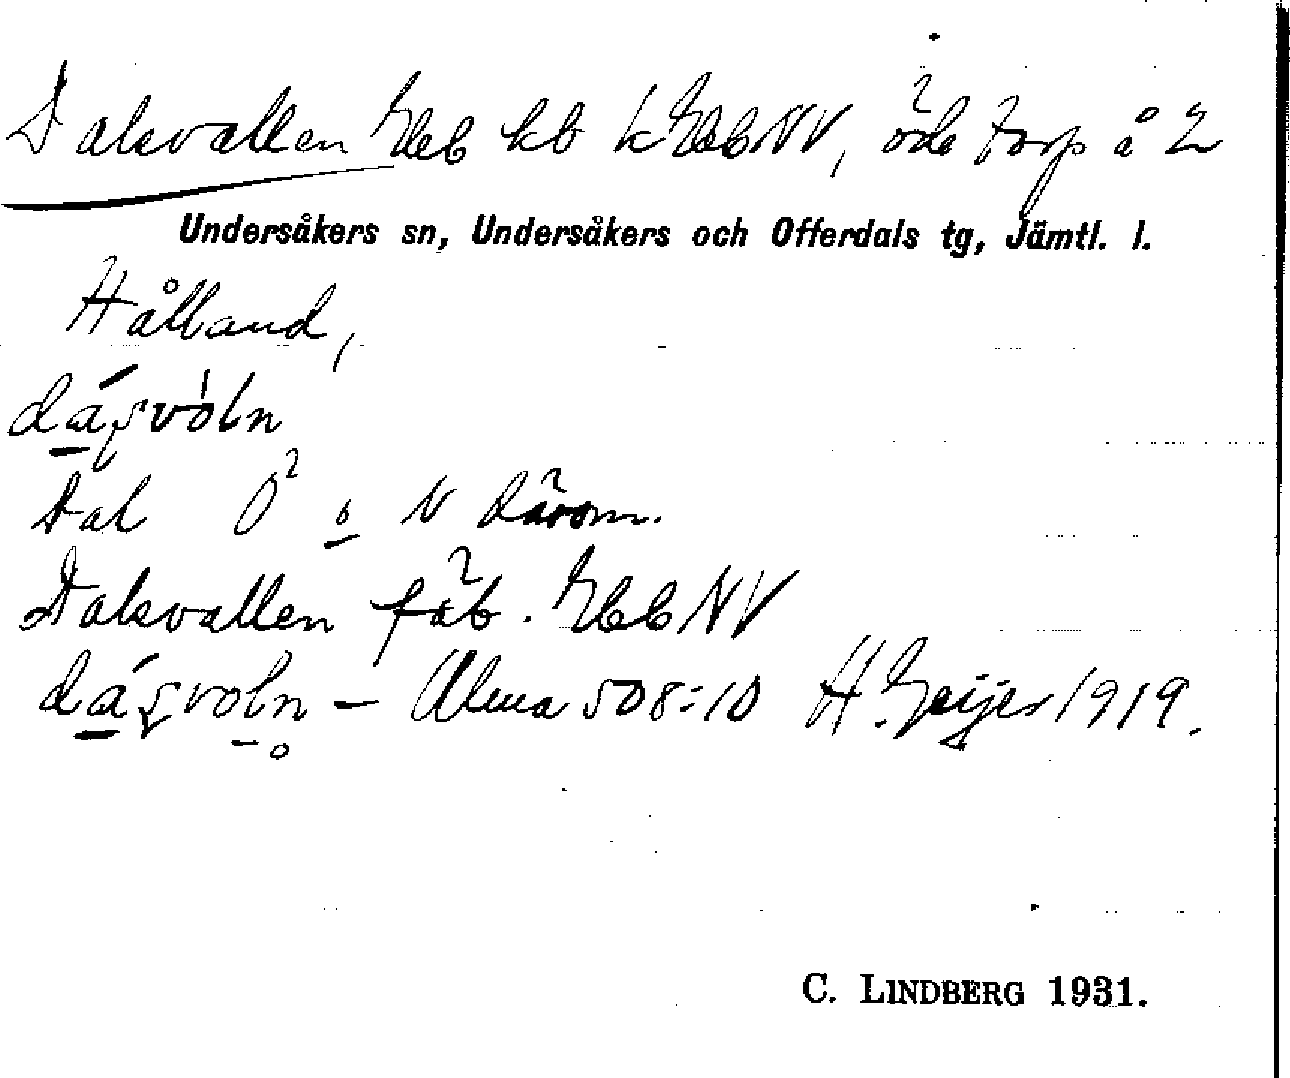 Dalsvallen Gbb kb k GbbNV, öde torp å 2
Undersåkers sn, Undersåkers och Offerdals tg, Jämtl. l.
Hålland,
Dal Ö o N därom.
Dalsvallen fäb. Gbb NV
— Ulma 508:10 H. Geijer 1919.
C. LINDBERG 1931.